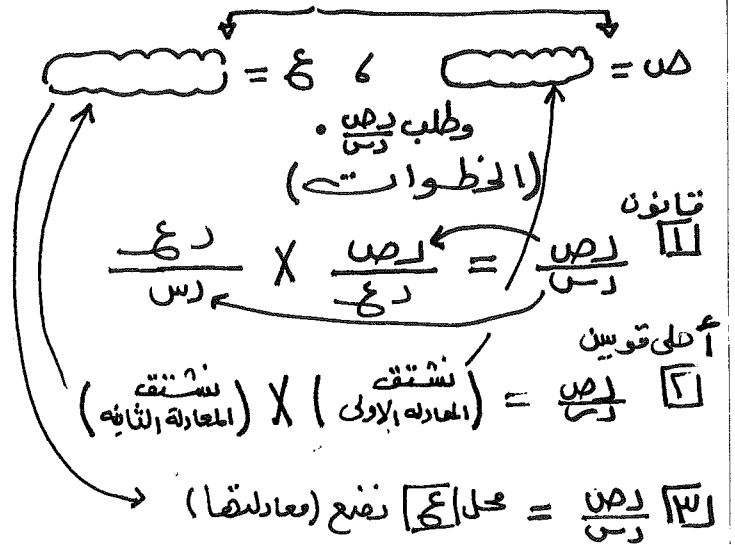 ص = ، ع =
وطلب دص/دس .
(الخطوات)
قانون
[١] دص/دس = دص/دع × دع/دس
أحلى قوسين
[٢] دص/دس = (نشتق المعادله الاولى) × (نشتق المعادلة الثانيه)
[٣] دص/دس = محل [ع] نضع (معادلتها)